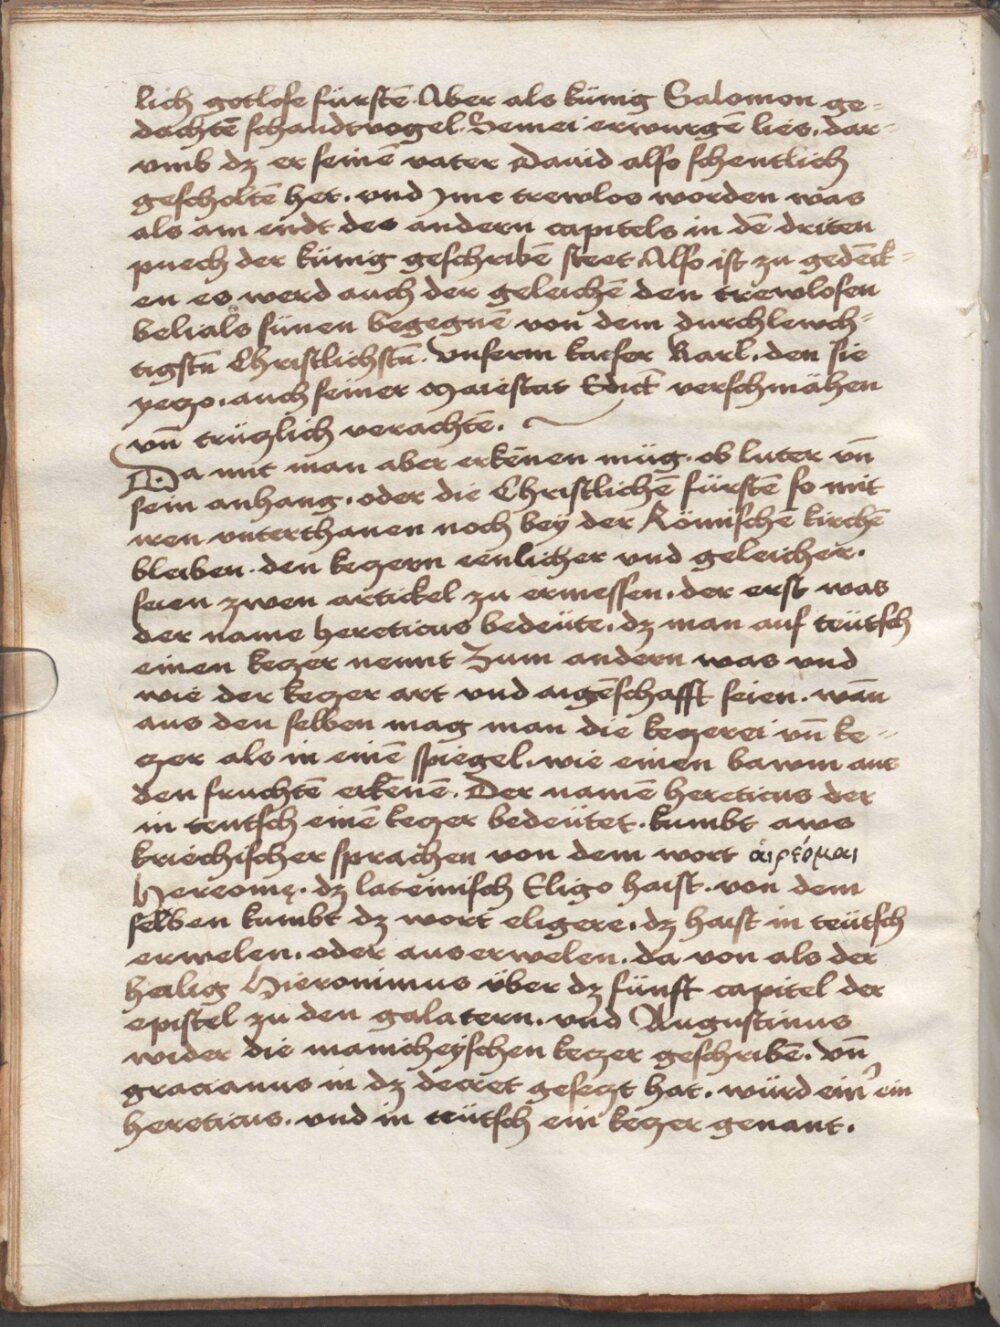 lich gotlose fürstē. Aber als künig Salomon ge=
dachtē schandtvogel Semei erwürgē lies, dar=
vmb dz er seinē vater Dauid also schentlich
gescholtē het. vnd Jme trewlos worden was
als am endt des andern capitels in dē driten
puech der künig geschribē steet. Also ist zu gedēck=
en es werd auch der geleichē den trewlosen
belials sünen begegnē von dem durchlewch=
tigstn̄ Christlichstn̄. vnserm kaiser Karl, den sie
yezo, auch seiner Maiestat Edict verschmähen
vn̄ trüzlich verachtē.
Da mit man aber erkēnen müg. ob luter vn̄
sein anhang, oder die Christlichē fürstē so mit
iren vnterthanen noch bey der Römischē kirchē
bleiben. den kezern einlicher vnd geleicher.
seien zwen artickel zu ermessen. der erst was
der name hereticus bedeüte, dz man auf teütsch
einen kezer nennt Zum andern was vnd
wie der kezer art vnd aigēschafft seien. wān
aus den selben mag man die kezerei vn̄ ke=
zer als in einē spiegel. wie einen bawm aus
den fruchtē erkēnē. Der namē hereticus der
in teutsch einē kezer bedeütet. kumbt aws
kriechischer sprachen von dem wort αἱρέομαι
Hereomę. dz lateinisch Eligo haist. von dem
selben kumbt dz wort eligere, dz haist in teütsch
erwelen, oder auserwelen. da von als der
heilig Hieronimus über dz fünft capitel der
epistel zu den galatern. vnd Augustinus
wider die manicheyschen kezer geschribē. vn̄
gracianus in dz decret gesezt hat. würd ein' ein
hereticus. vnd in teütsch ein kezer genant.